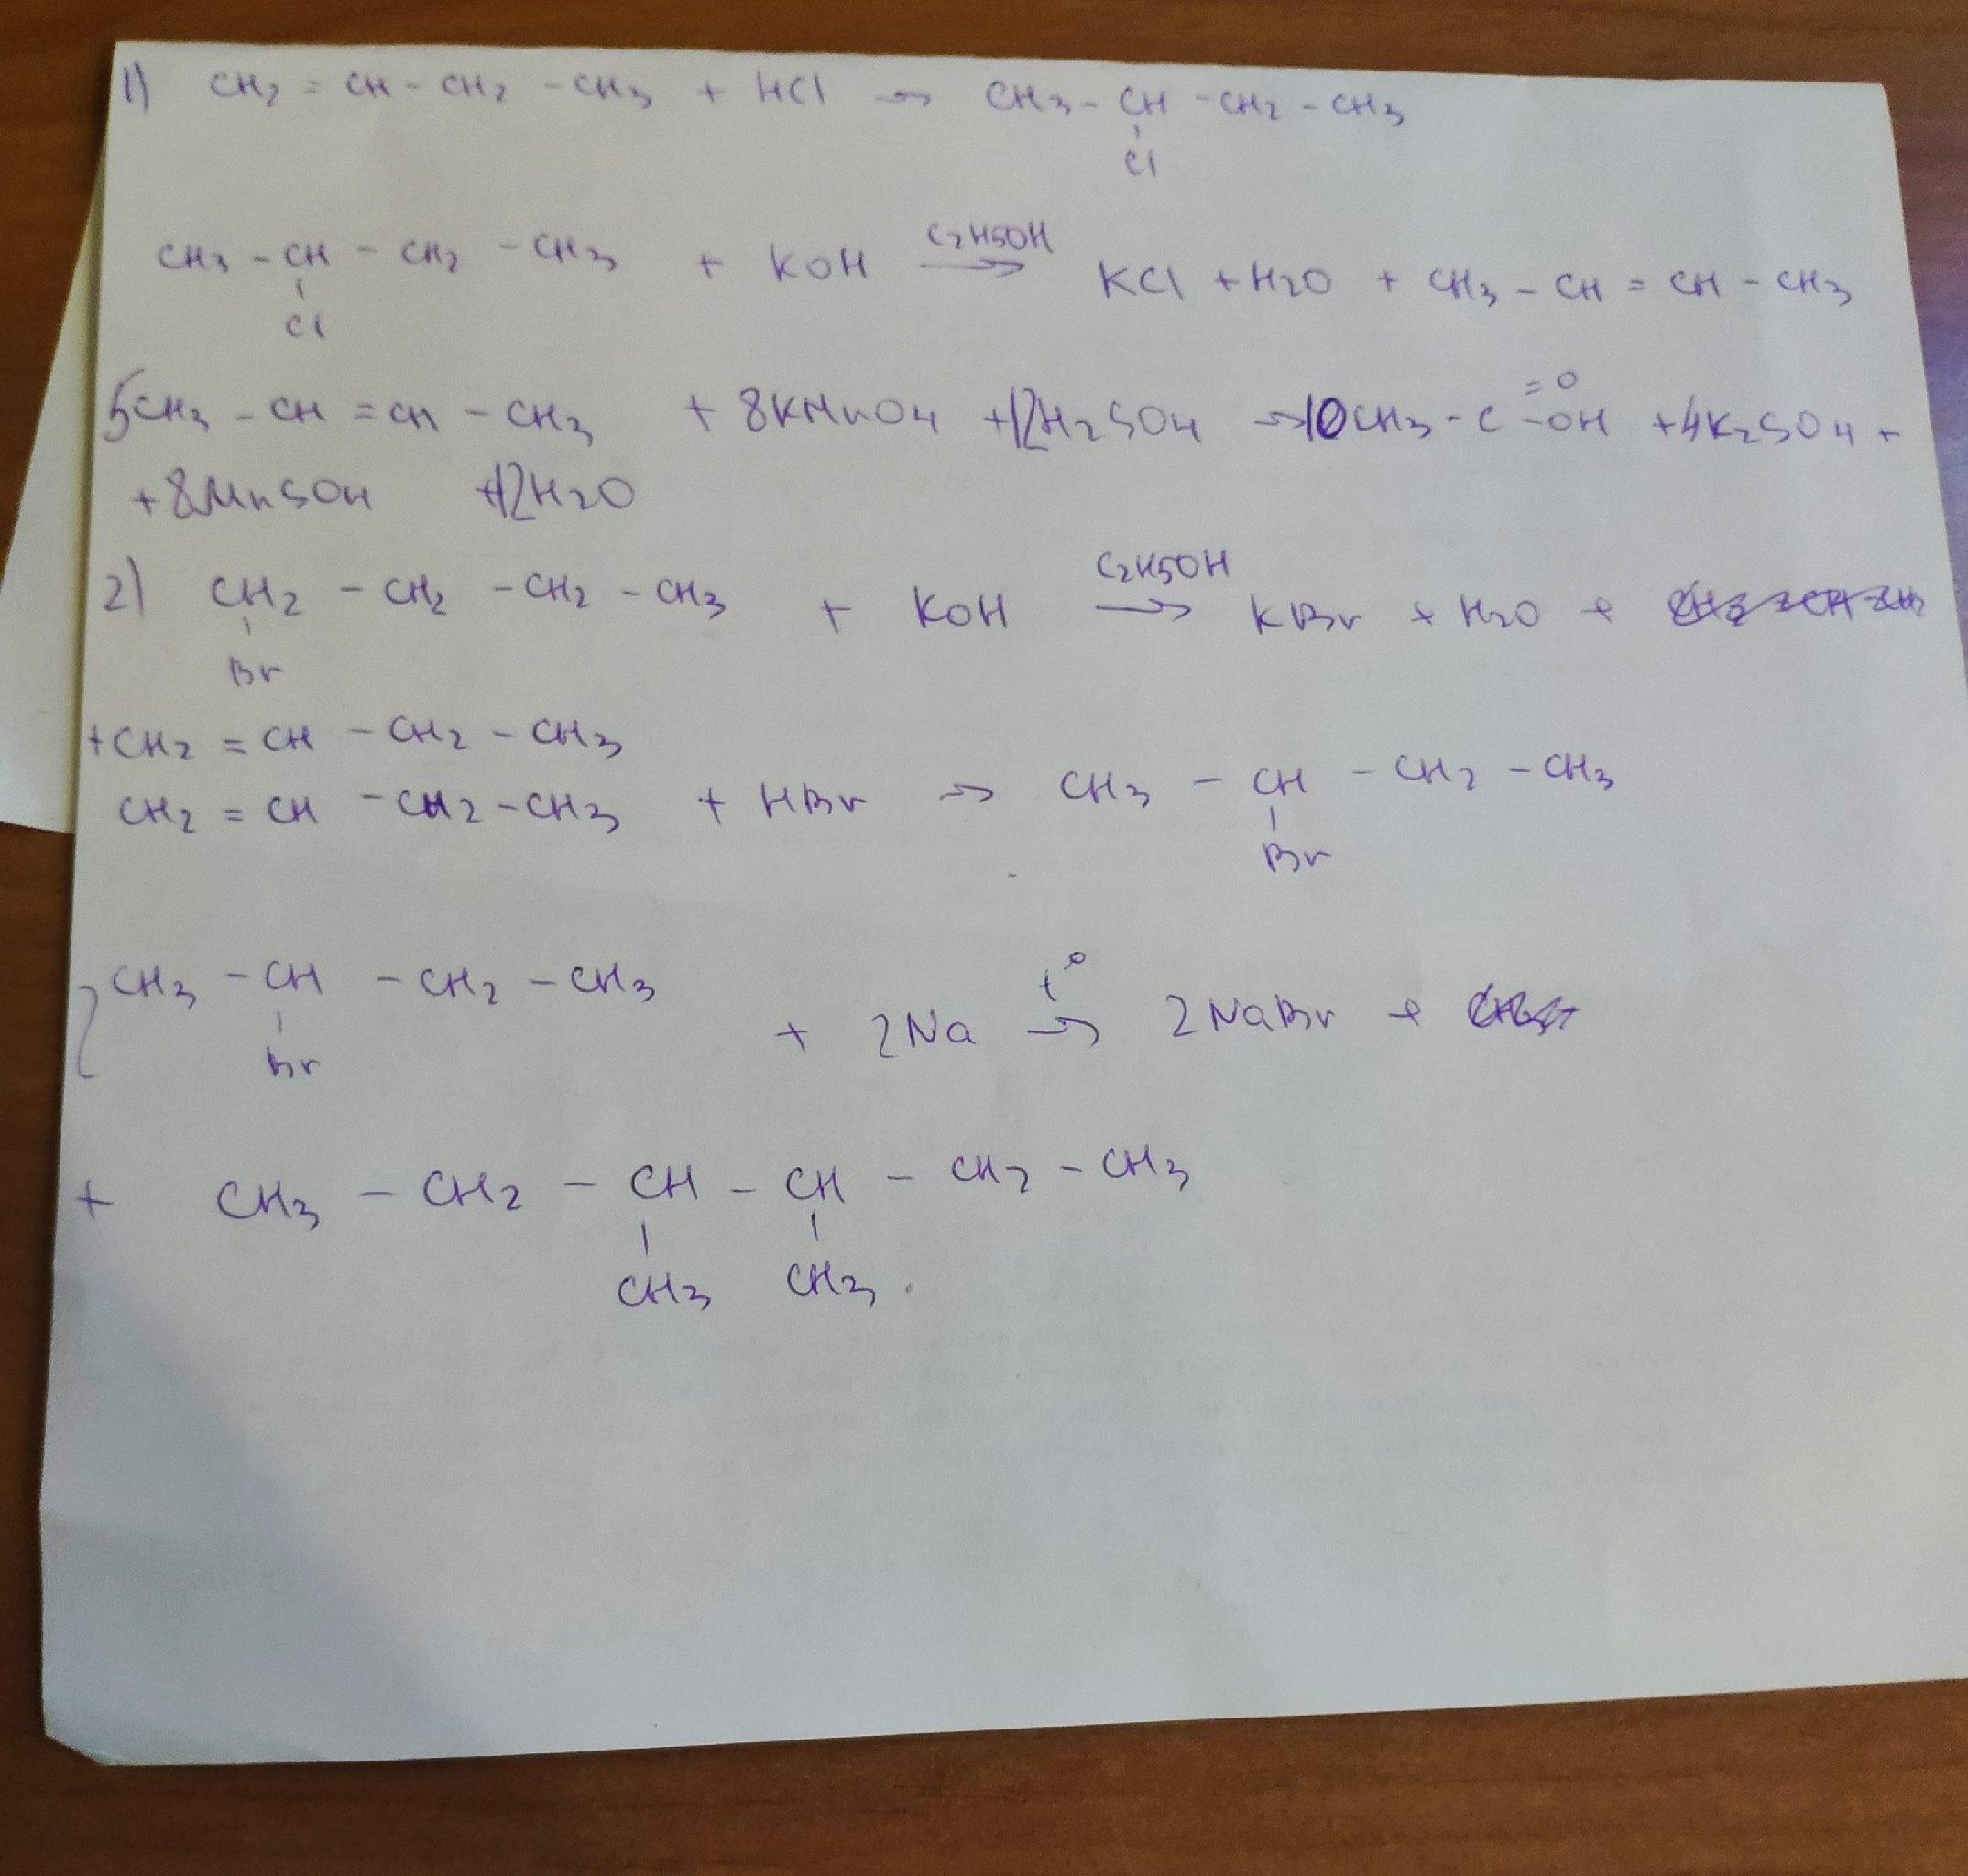 1) CH2 = CH - CH2 - CH3 + HCl → CH3 - CH - CH2 - CH3
Cl
CH3 - CH - CH2 - CH3 + KOH C2H5OH → KCl + H2O + CH3 - CH = CH - CH3
Cl
5CH3 - CH = CH - CH3 + 8KMnO4 + 12H2SO4 → 10CH3 - C =O -OH + 4K2SO4 +
+ 8MnSO4 + 12H2O
2) CH2 - CH2 - CH2 - CH3 + KOH C2H5OH → KBr + H2O +
Br
+ CH2 = CH - CH2 - CH3
CH2 = CH - CH2 - CH3 + HBr → CH3 - CH - CH2 - CH3
Br
2CH3 - CH - CH2 - CH3 + 2Na t° → 2NaBr +
Br
+ CH3 - CH2 - CH - CH - CH2 - CH3
CH3 CH3.